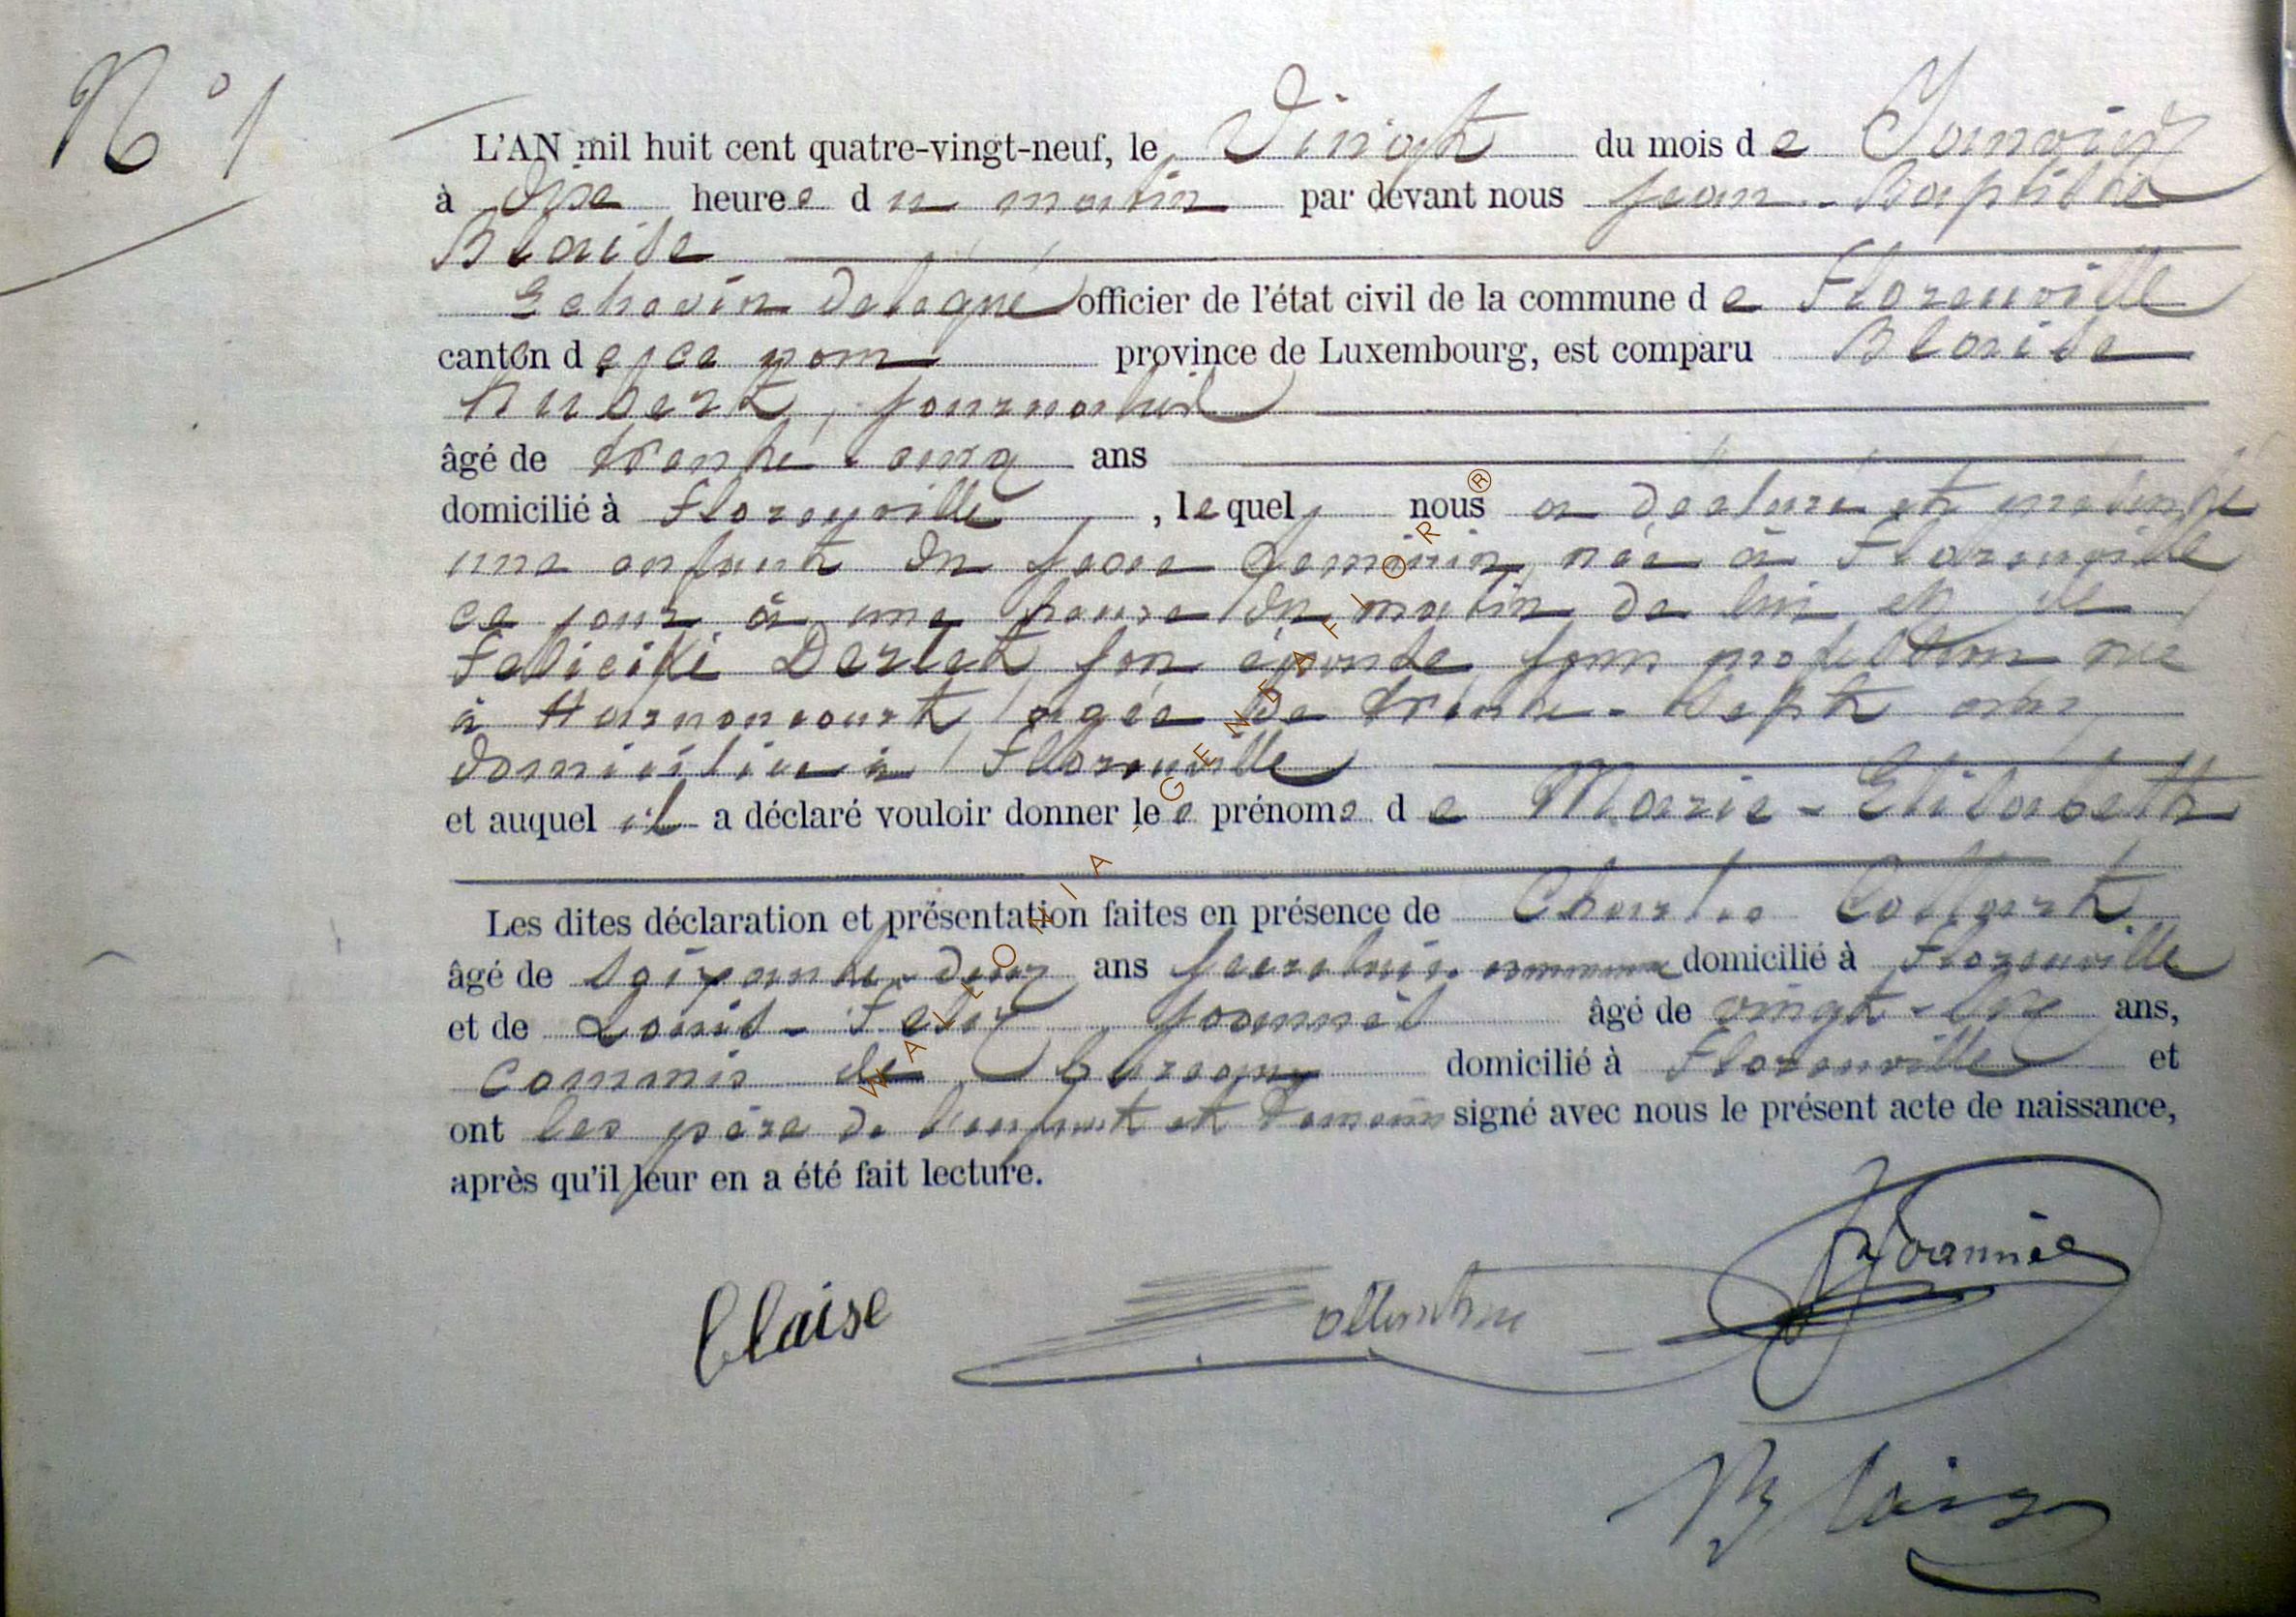 N° 1
L'AN mil huit cent quatre-vingt-neuf, le Vingt du mois de Janvier
à dix heures du matin par devant nous Jean-Baptiste
Blaise
Echevin délégué officier de l'état civil de la commune de Florenville
canton de ce nom province de Luxembourg, est comparu Blaise
Hubert, journalier
âgé de trente-cinq ans
domicilié à Florenville, lequel nous a déclaré et présenté
une enfant du sexe feminin, née à Florenville
ce jour à une heure du matin de lui et de
Felicité Derlet son épouse sans profession née
à Harnoncourt agée de trente-sept ans
domiciliée à Florenville
et auquel il a déclaré vouloir donner les prénoms de Marie-Elisabeth
Les dites déclaration et présentation faites en présence de Charles Collart
âgé de soixante-deux ans secretaire communal domicilié à Florenville
et de Louis-Felix Joannès âgé de vingt-six ans,
commis de domicilié à Florenville et
ont les père de l'enfant et temoins signé avec nous le présent acte de naissance,
après qu'il leur en a été fait lecture.
blaise Joannès
Blaise
WALLONIA-GENEAFIOR®